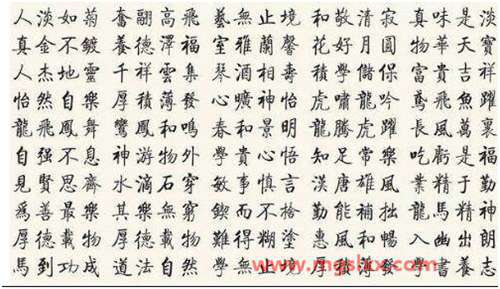 人淡如菊 奮翮高飛 藝無止境 和敬清寂 真味是淡
真金不鍍 養德澤福 室雅蘭馨 花好月圓 物華天寶
人杰地靈 千祥雲集 琴酒相壽 積學儲保 富貴吉祥
怡然自樂 厚積薄發 心曠神怡 虎嘯龍吟 鳶飛魚躍
龍飛鳳舞 鸞鳳和鳴 春和景明 龍騰虎躍 長風萬裏
自强不息 神游物外 學貴心悟 知足常樂 吃虧是福
見賢思齊 水滴石穿 敏事慎言 漢唐雄風 業精于勤
爲善最樂 其樂無窮 鍥而不捨 勤能補拙 龍馬精神
厚德載物 厚德載物 難得糊塗 惠風和暢 入幽出朗
馬到功成 道法自然 學無止境 厚積薄發 學書明志